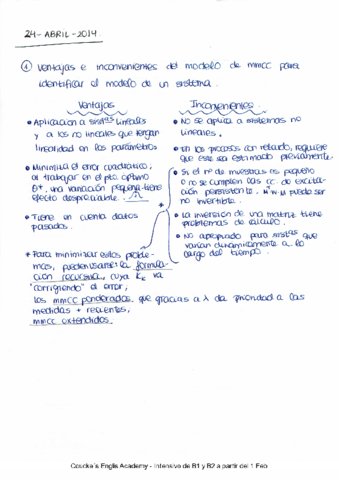 24-ABRIL-2014
① Ventajas e inconvenientes del modelo de mmcc para
identificar el modelo de un sistema.
Ventajas
• Aplicación a sistas lineales
y a los no lineales que tengan
linealidad en los parámetros
• Minimiza el error cuadrático;
al trabajar en el pto. óptimo
θ*, una variación pequeña tiene
efecto despreciable.
• Tiene en cuenta datos
pasados.
• Para minimizar estos proble-
mas, puede usarse la formula-
ción recursiva, cuya Kk va
"corrigiendo" el error;
los mmcc ponderados, que gracias a λ da prioridad a las
medidas + recientes;
mmcc extendidos.
Inconvenientes
• No se aplica a sistemas no
lineales.
• En los procesos con retardo, requiere
que éste sea estimado previamente.
• Si el nº de muestras es pequeño
o no se cumplen las cc de excita-
ción persistente, MᵀM puede ser
no invertible.
• La inversión de una matriz tiene
problemas de cálculo.
• No apropiado para sistas que
varían dinámicamente a lo
largo del tiempo.
Coucke's Englis Academy - Intensivo de B1 y B2 a partir del 1 Feb